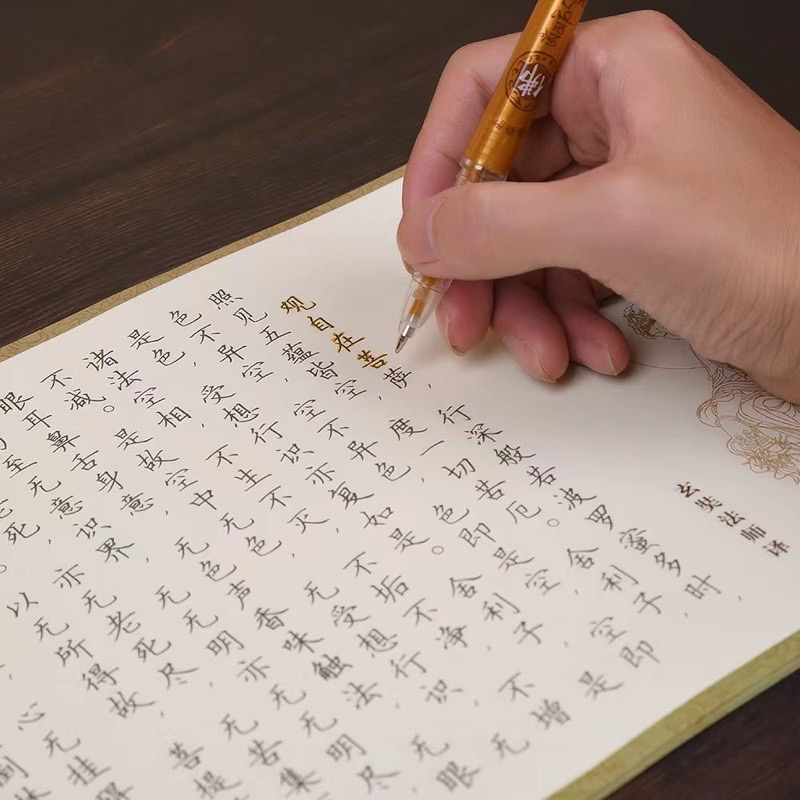 玄奘法师译
观自在菩萨,行深般若波罗蜜多时,
照见五蕴皆空,度一切苦厄。舍利子,
色不异空,空不异色,色即是空,空即
是色。受想行识,亦复如是。舍利子,是
诸法空相,不生不灭,不垢不净,不增
不减。是故空中无色,无受想行识,无
眼耳鼻舌身意,无色声香味触法,无眼
至无意识界,无无明,亦无无明尽
死,亦无老死尽,无苦集
以无所得故,菩提
心无挂